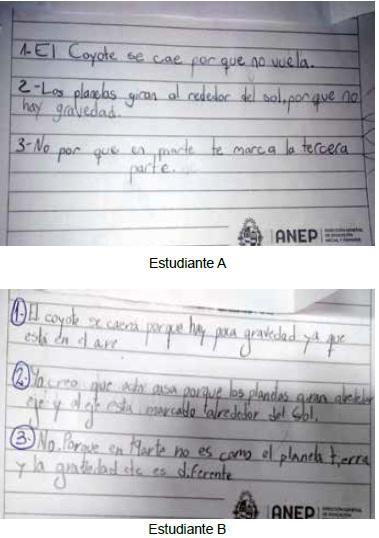 1-El Coyote se cae por que no vuela.
2-Los planetas giran al rededor del sol, por que no
hay gravedad.
3-No por que en marte te marca la tercera
parte.
ANEP
Estudiante A
1. El coyote se caería porque hay poca gravedad ya que
está en el aire
2. Yo creo que esto pasa porque los planetas giran
eje y el eje esta marcado alrededor del Sol.
3. No. Porque en Marte no es como el planeta tierra
y la gravedad es diferente
ANEP
Estudiante B